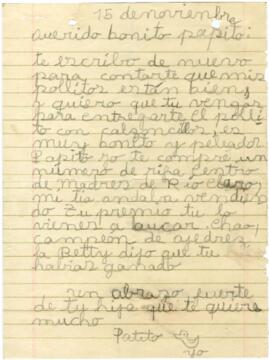 15 de noviembre
querido bonito papito:
te escribo de nuevo
para, contarte que mis
pollitos estan bien,
y quiero que tu vengas
para entregarte el polli
to con calsoncillos, es
muy bonito y peliador.
Papito yo te compre un
numero de rifa centro
de madres de Rio Claro,
mi tia andaba vendien
do tu premio tu lo
vienes a bucar. Chao,
campeón de ajedres,
la Betty dijo que tu
habias ganado
un abrazo fuerte
de ty hija que te quiere
mucho
Patito
yo